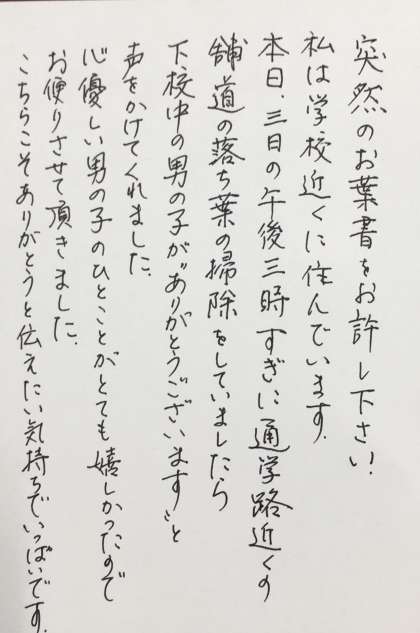 突然のお葉書をお許し下さい.
私は学校近くに住んでいます.
本日.三日の午後三時すぎに通学路近くの
舗道の落ち葉の掃除をしていましたら
下校中の男の子が"ありがとうございます"と
声をかけてくれました.
心優しい男の子のひとことがとても嬉しかったので
お便りさせて頂きました.
こちらこそありがとうと伝えたい気持ちでいっぱいです.